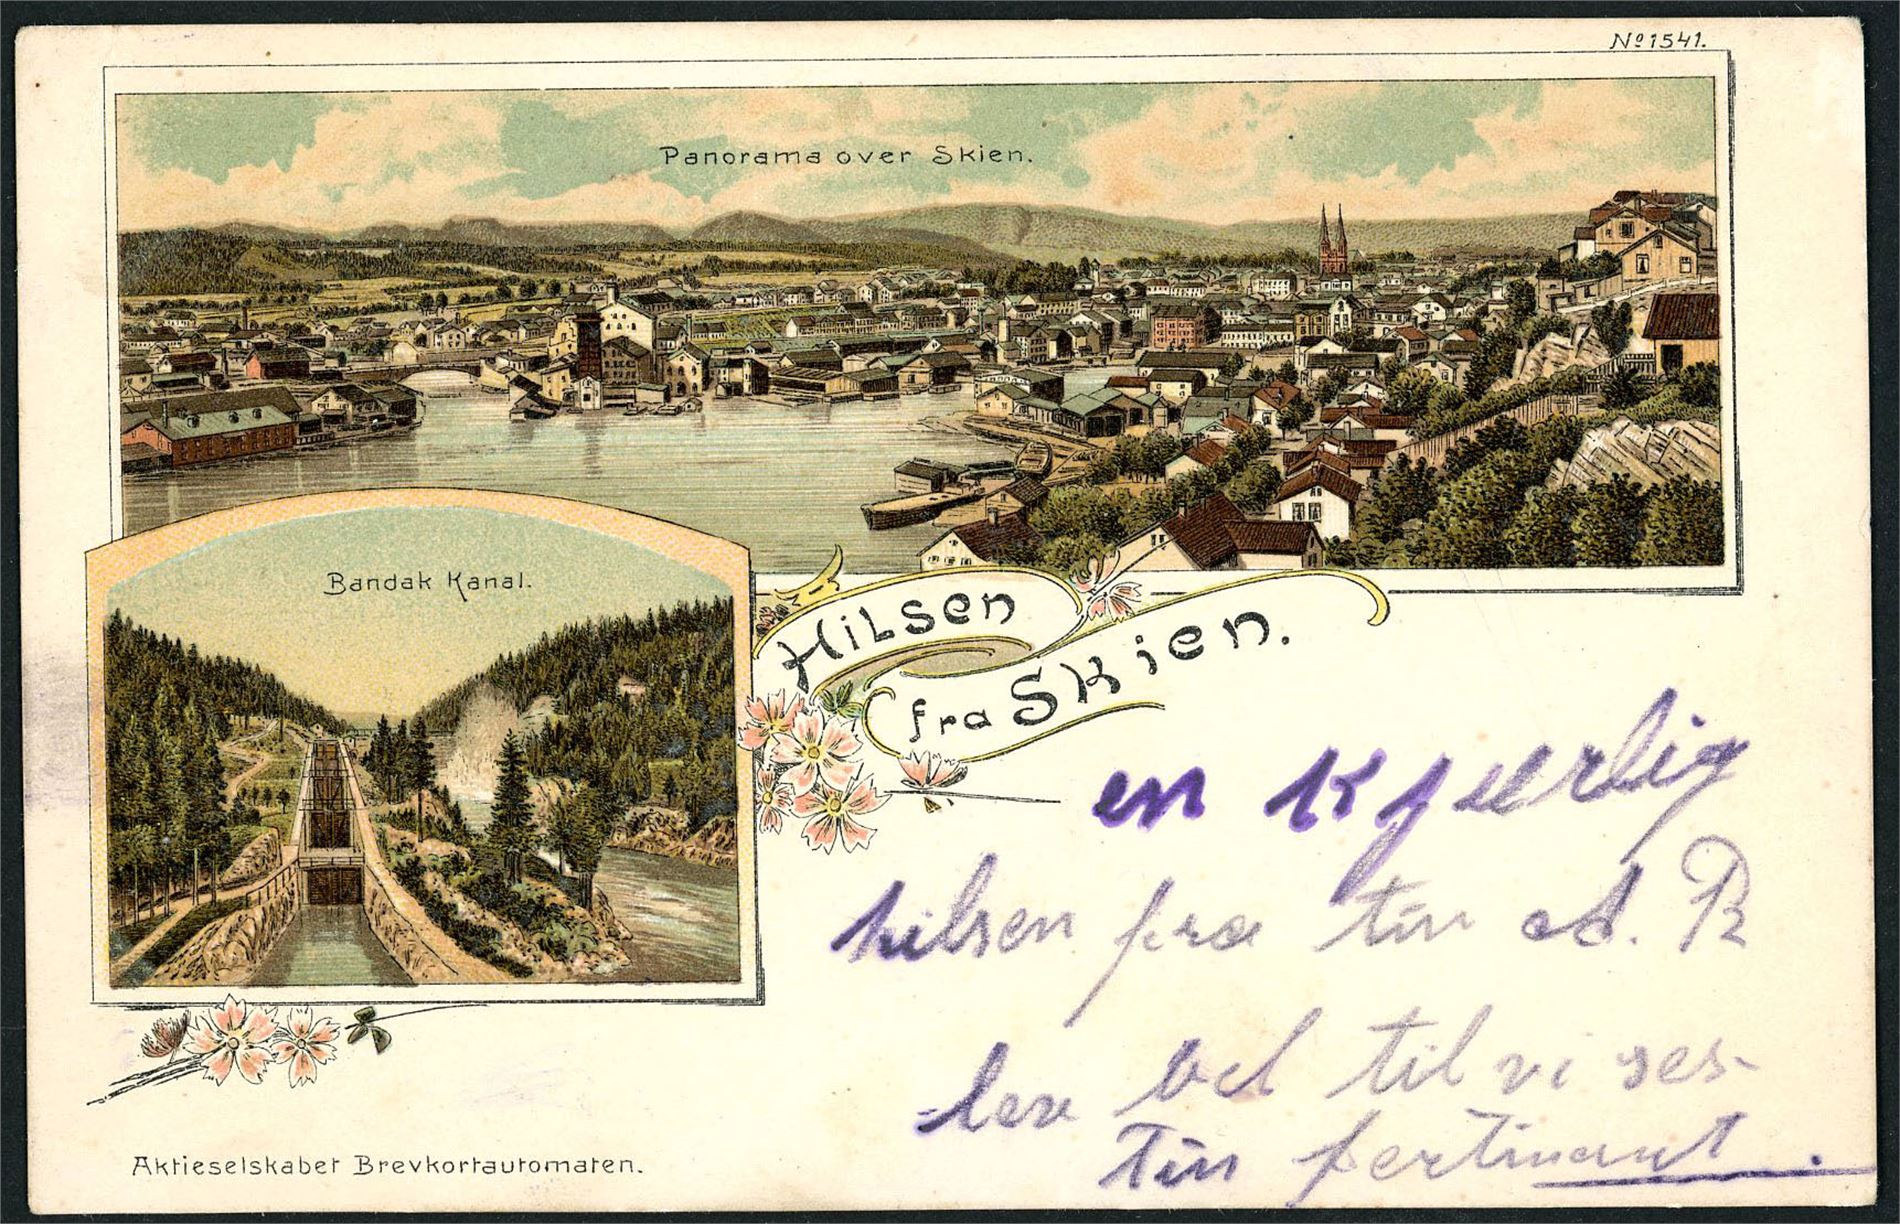 No 1541.
Panorama over Skien.
Bandak Kanal.
Hilsen
fra Skien.
en Kjærlig
hilsen fra tin
lev vel til vi ses
tin
Aktieselskabet Brevkortautomaten.